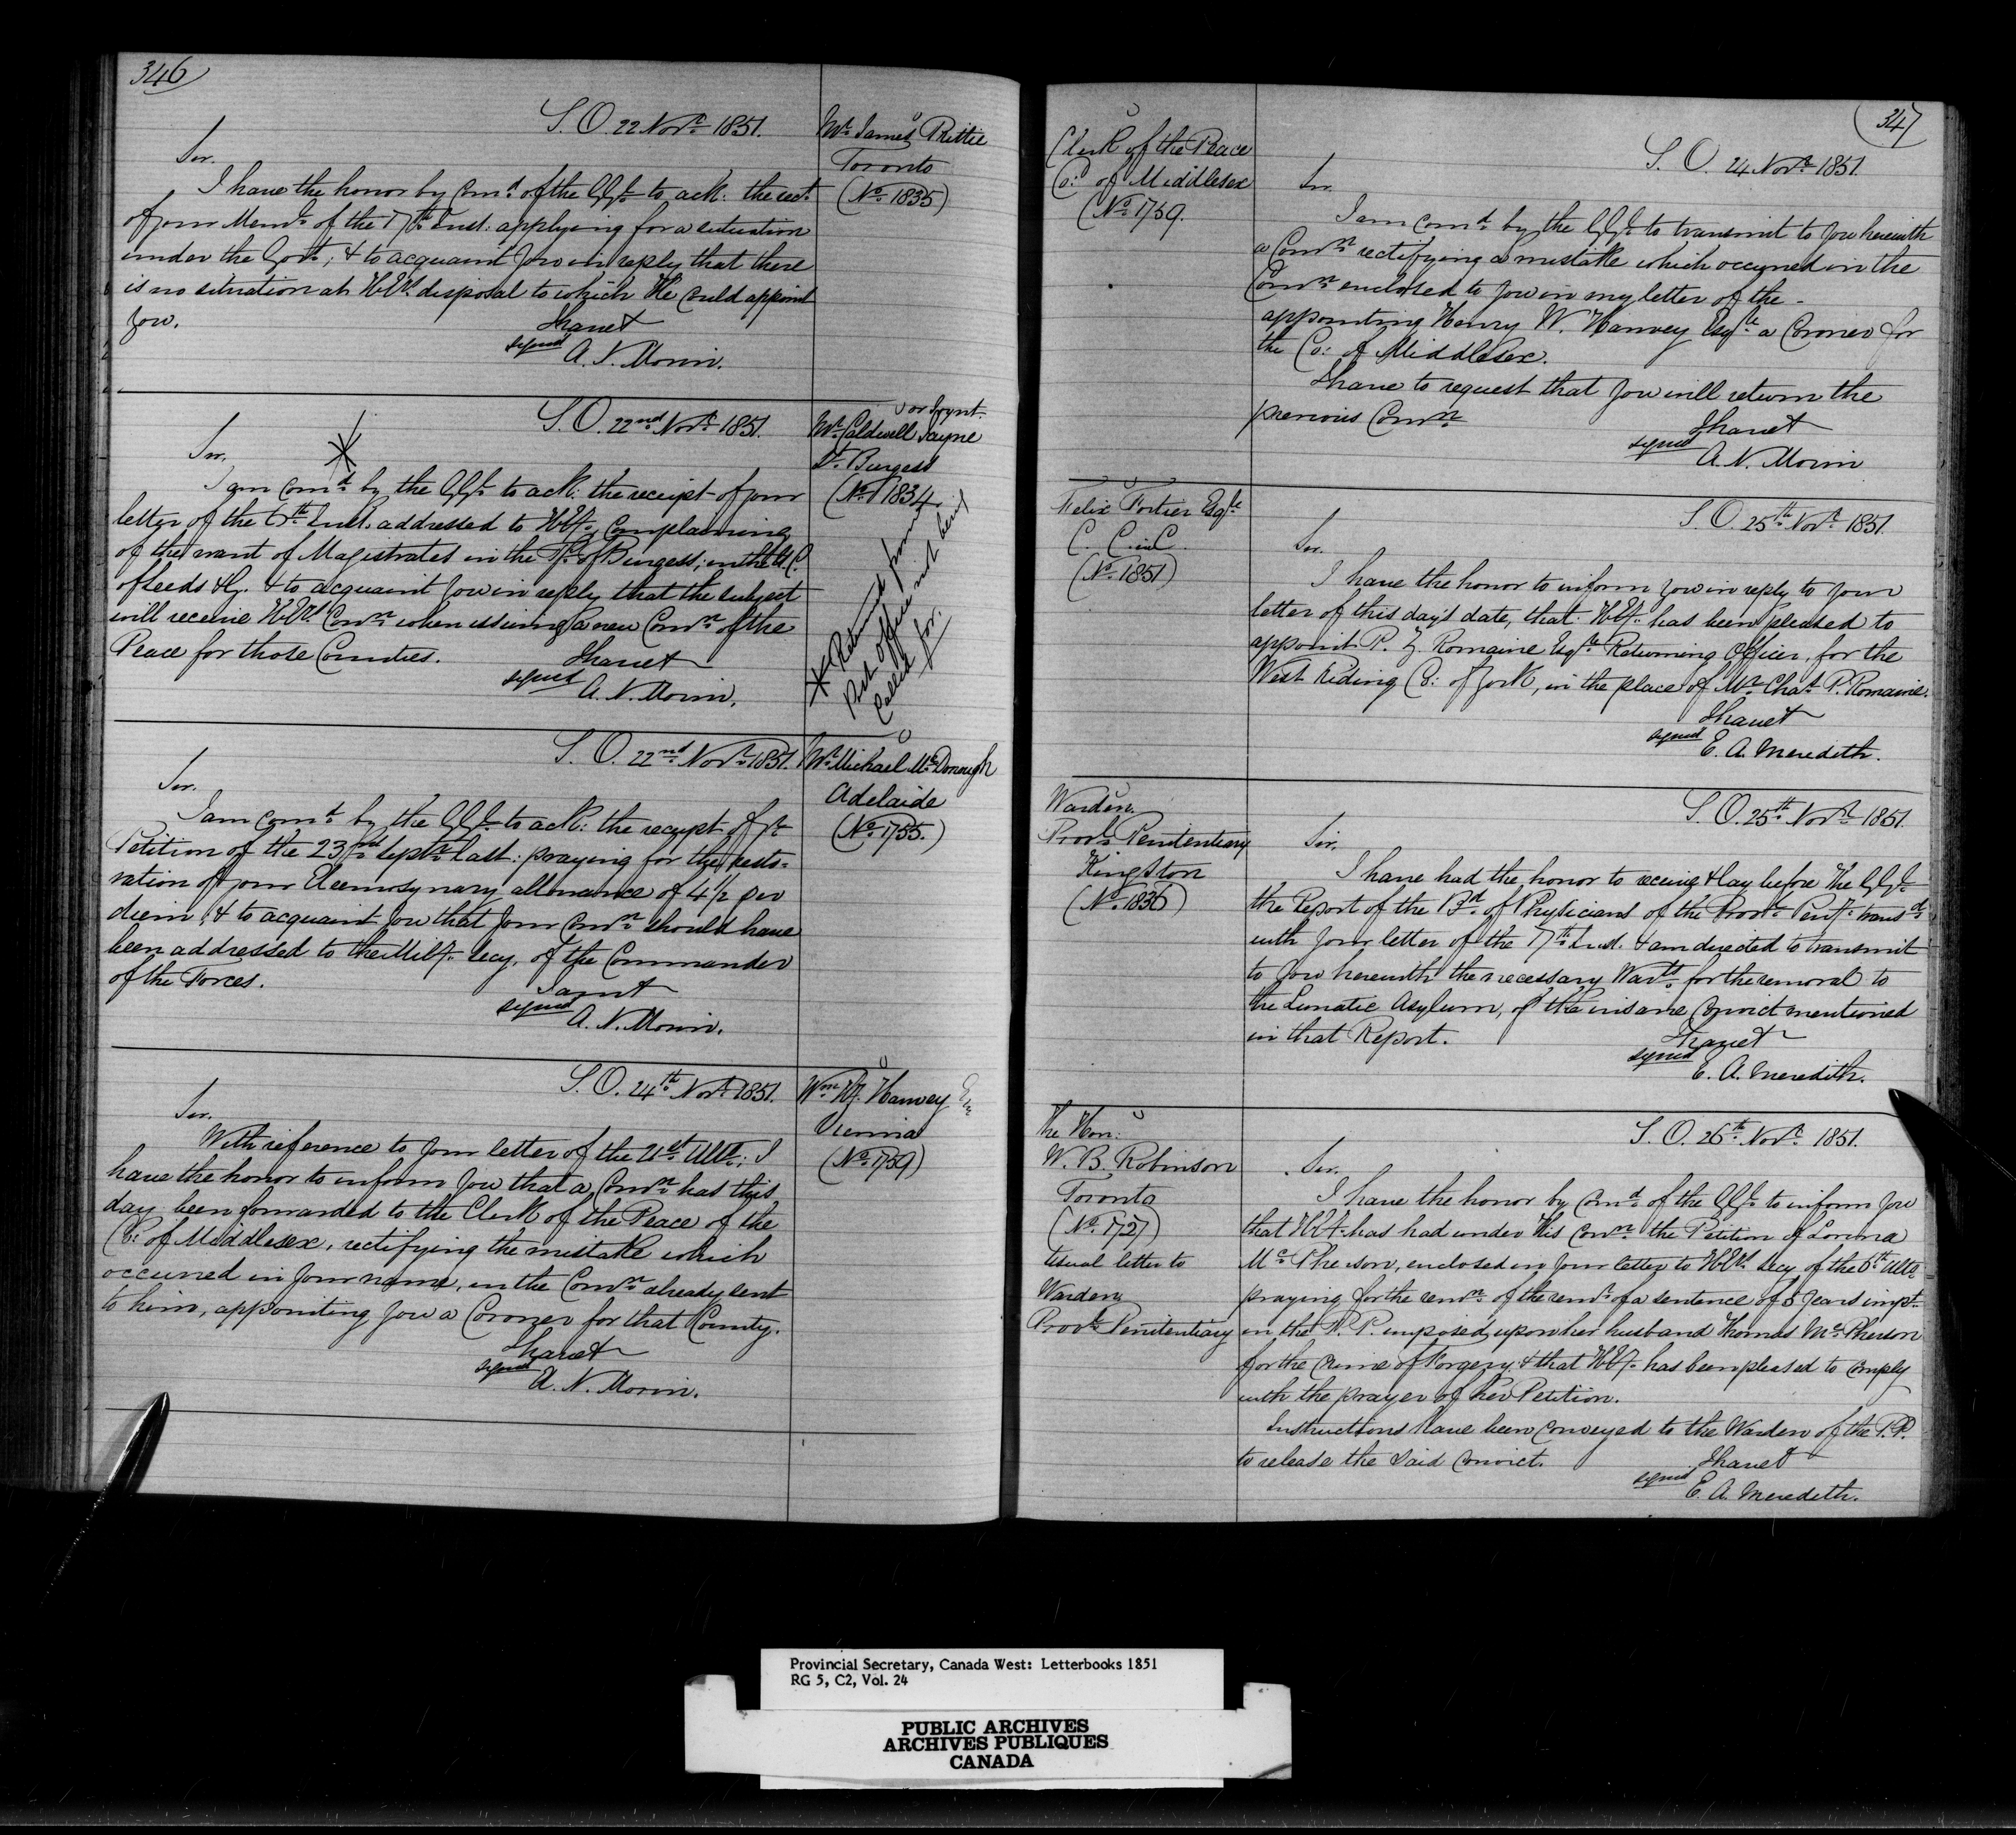 346
S. O. 22 Novr. 1851.
Mr. James Rittie
Toronto
(No. 1835)
Sir.
I have the honor by Comd. of the G. G. to ack: the rect.
of your Meml. of the 17th Inst: applying for a situation
under the Govt.; & to acquaint you in reply that there
is no situation at H.E's. disposal to which He could appoint
you.
I have &
signed
A. N. Morin.
S. O. 22nd Novr. 1851.
or Joynt
Mr. Caldwell Jayne
Burgess
(No. 1834
Sir.
I am comd. by the G. G. to ack: the receipt of your
letter of the 6th Inst. addressed to H. Ey. complaining
of the want of Magistrates in the Tp. of Burgess; in the U. C.
of Leeds & G. & to acquaint you in reply that the subject
will receive H. E's. Conn. when issuing a new Comn. of the
Peace for those Counties.
I have &
signed
A. N. Morin.
* Returned from
Post office not being
called for.
S. O. 22nd Novr. 1851.
Mr. Michael McDonough
Adelaide
(No. 1755.)
Sir.
I am comd. by the G. G. to ack: the receipt of yr.
Petition of the 23rd Septr. last: praying for the resto=
ration of your Eleemosynary allowance of 4½ per
diem; & to acquaint you that your Comn. should have
been addressed to the Mily. Secy. of the Commander
of the Forces.
I am &
signed
A. N. Morin.
S. O. 24th Novr. 1851.
Wm. W. Hanvey
Vienna
(No. 1759)
Sir.
With reference to your letter of the 21st Ulto.; I
have the honor to inform you that a Comn. has this
day been forwarded to the Clerk of the Peace of the
Co: of Middlesex, rectifying the mistake which
occurred in your name, in the Comn. already sent
to him, appointing you a Coroner for that County.
I have &
signed
A. N. Morin.
347
Clerk of the Peace
Co: of Middlesex
(No. 1759.
S. O. 24 Novr. 1851.
Sir
I am comd. by the G. G. to transmit to you herewith
a Comn. rectifying a mistake which occurred in the
Comn. enclosed to you in my letter of the -
appointing Henry W. Hanvey Esqre. a Coroner for
the Co: of Middlesex.
I have to request that you will return the
previous Comn.
I have &
signed
A. N. Morin
Felix Fortier Esqre.
C. C. in C.
(No. 1851)
S. O. 25th Novr. 1851.
Sir.
I have the honor to inform you in reply to your
letter of this day's date, that H. Ey. has been pleased to
appoint R. Z. Romaine Esqre. Returning Officer, for the
West Riding Co: of York, in the place of Mr. Chas. P. Romaine.
I have &
signed
E. A. Meredith.
Warden.
Provl. Penitentiary
Kingston
(No. 1836)
S. O. 25th Novr. 1851.
Sir,
I have had the honor to receive & lay before The G. G.
the Report of the Bd. of Physicians of the Provl. Peny. transd.
with your letter of the 17th Inst. & am directed to transmit
to you herewith the necessary Warts. for the removal to
the Lunatic Asylum, of the insane Convict mentioned
in that Report.
I have &
signed
E. A. Meredith.
The Hon:
W. B. Robinson
Toronto
(No. 1727)
Usual letter to
Warden
Provl. Penitentiary
S. O. 26th Novr. 1851.
Sir.
I have the honor by Comd. of the G. G. to inform you
that H. Ey. has had under His Conn. the Petition of Lorina
McPherson, enclosed in your letter to H. E's. Secy of the 6th Ulto.
praying for the remn. of the remr. of a sentence of 5 years impt.
in the P. P. imposed upon her husband Thomas McPherson
for the crime of Forgery; & that H. Ey. has been pleased to comply
with the prayer of her Petition.
Instructions have been conveyed to the Warden of the P. P.
to release the said Convict.
I have &
signed
E. A. Meredith.
Provincial Secretary, Canada West: Letterbooks 1851
RG 5, C2, Vol. 24
PUBLIC ARCHIVES
ARCHIVES PUBLIQUES
CANADA